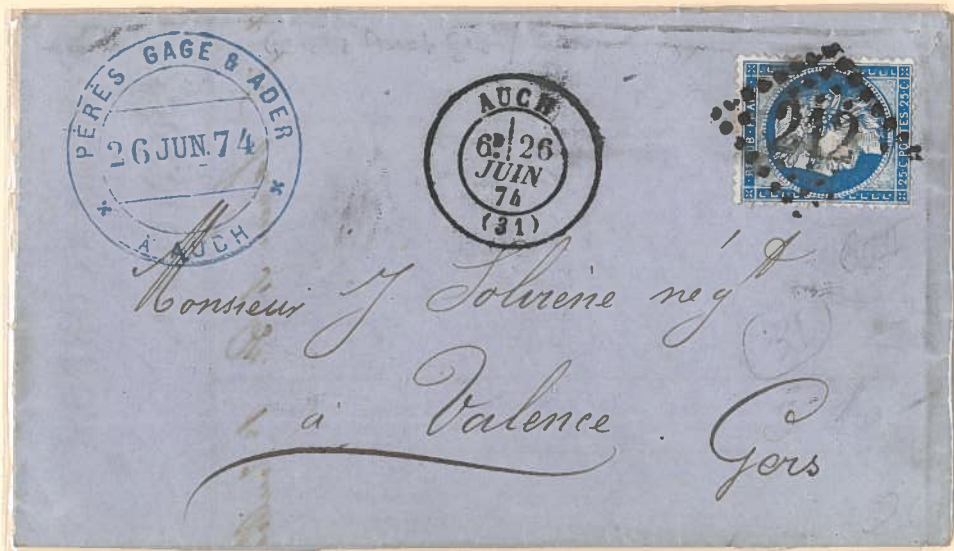 PÉRÈS GAGE & ADER
26 JUN. 74
* À AUCH *
AUCH
6E 26
JUIN
74
(31)
REPUB. FRANC.
25·C POSTES 25·C
212
Monsieur J Solirène négt
à Valence
Gers